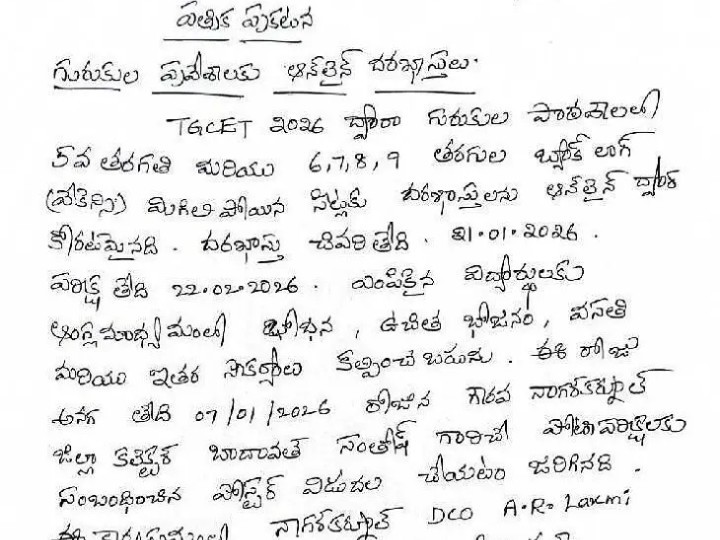 పత్రిక ప్రకటన
గురుకుల ప్రవేశాలకు ఆన్‌లైన్ దరఖాస్తులు.
TGCET 2026 ద్వారా గురుకుల పాఠశాలలో
5వ తరగతి మరియు 6,7,8,9 తరగతుల బ్యాక్ లాగ్
(వేకెన్సి) మిగిలి పోయిన సీట్లకు దరఖాస్తులను ఆన్‌లైన్ ద్వార
కోరటమైనది. దరఖాస్తు చివరి తేది. 21.01.2026.
పరీక్ష తేది 22.02.2026. ఎంపికైన విద్యార్థులకు
ఆంగ్ల మాధ్యమంలో బోధన, ఉచిత భోజనం, వసతి
మరియు ఇతర సౌకర్యాలు కల్పించే బడును. ఈ రోజు
అనగ తేది 07/01/2026 రోజున గౌరవ నాగర్‌కర్నూల్
జిల్లా కలెక్టర్ బాదావత్ సంతోష్ గారిచే పోటాపరీక్షలకు
సంబంధించిన పోస్టర్ విడుదల చేయటం జరిగినది.
ఈ కార్యక్రమంలో నాగర్‌కర్నూల్ DCO A.R. Laxmi